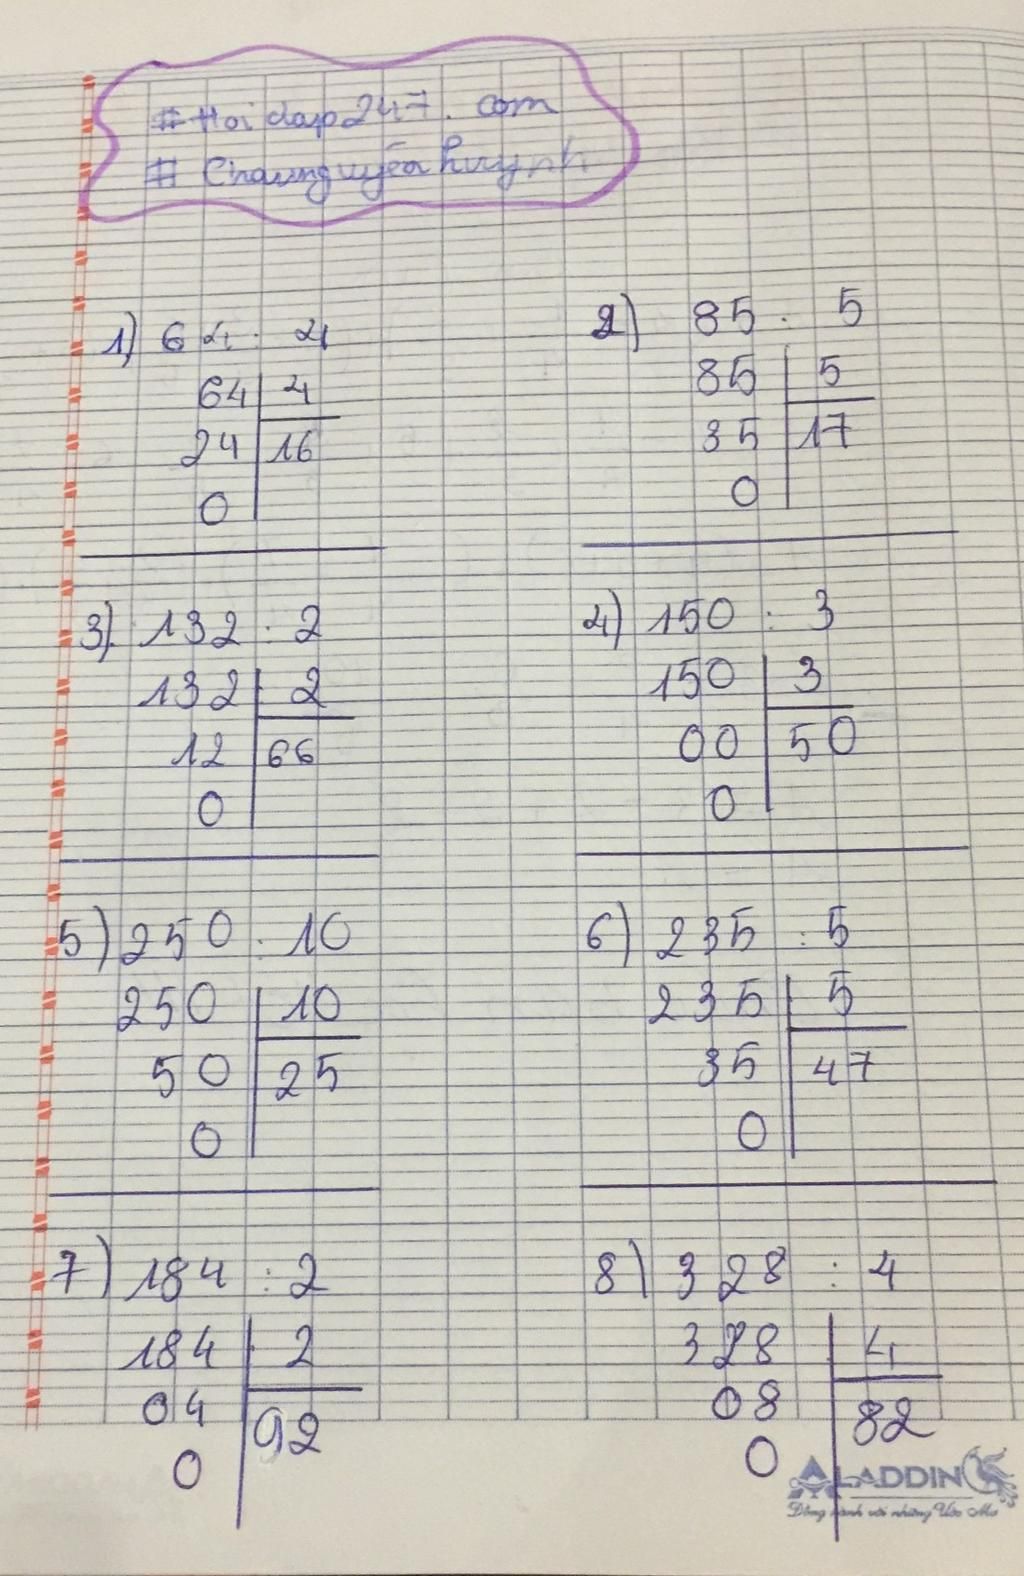 # Hoi dap 247. com
# Chaunguyenhuynh
1) 64 : 4
64 4
24 16
0
2) 85 : 5
85 5
35 17
0
3) 132 : 2
132 2
12 66
0
4) 150 : 3
150 3
00 50
0
5) 250 : 10
250 10
50 25
0
6) 235 : 5
235 5
35 47
0
7) 184 : 2
184 2
04 92
0
8) 328 : 4
328 4
08 82
0
ALADDIN
Đồng hành với những Ước Mơ